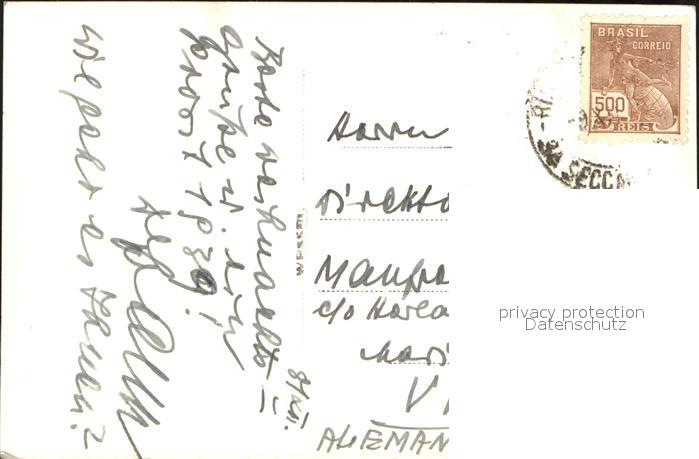 Beste Weihnachts =
Grüße u. ein
Prosit 1939!
Wie geht es Ihnen?
8/XII.
WESSEL
BRASIL
CORREIO
500
REIS
3A SECC
Herrn
Direkto
Manfre
c/o
V
ALEMAN
privacy protection
Datenschutz